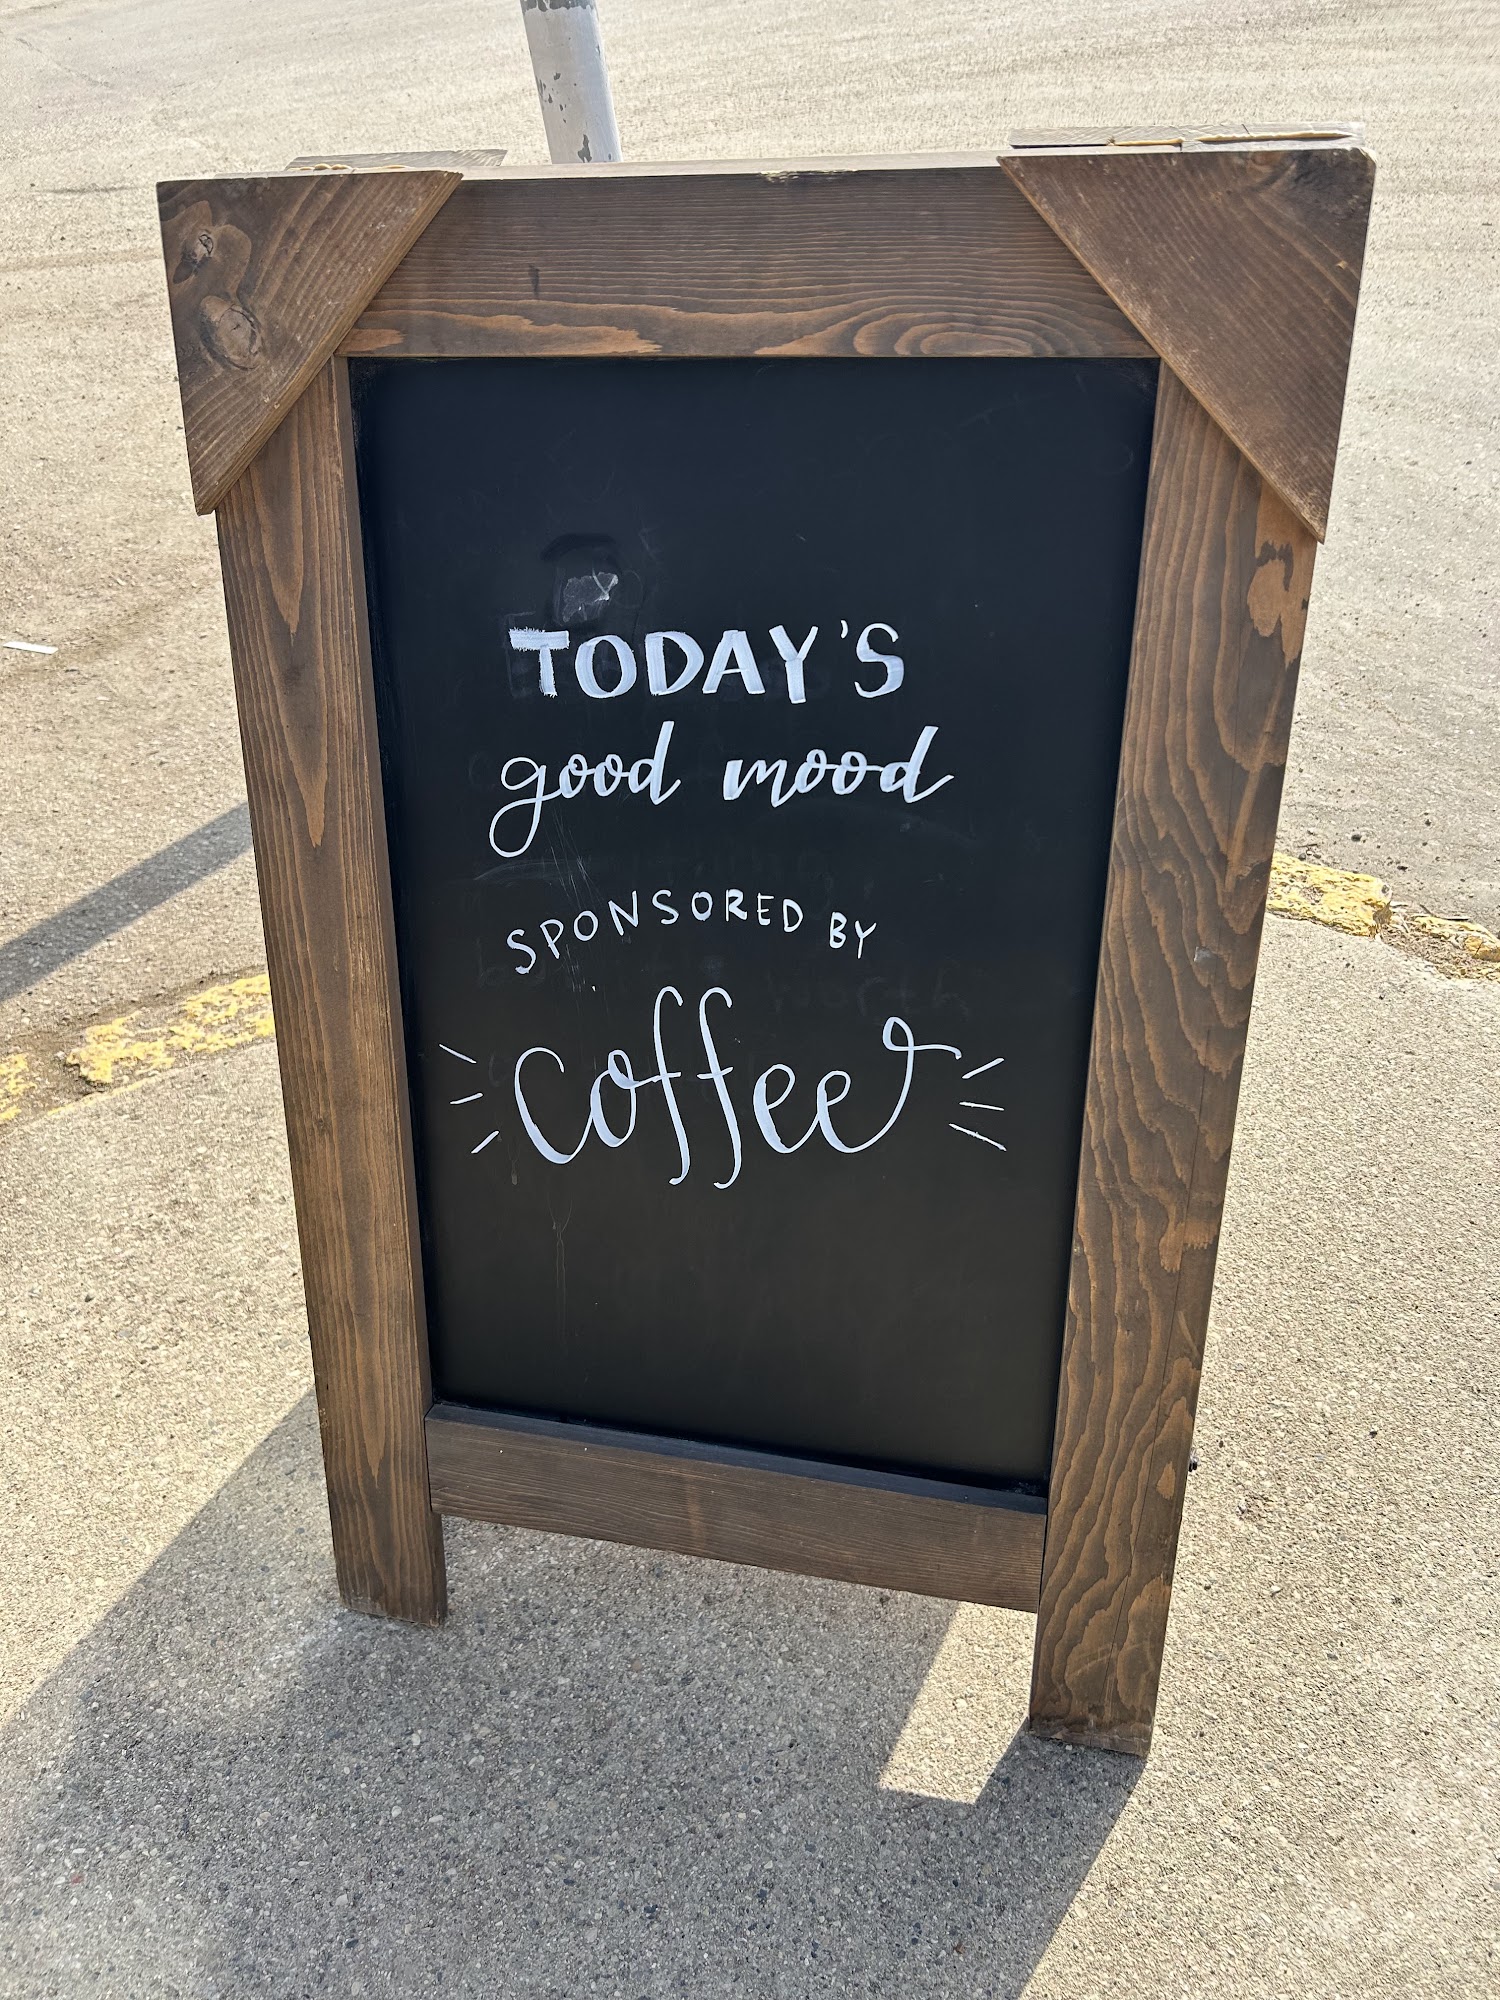 TODAY'S
good mood
SPONSORED BY
coffee